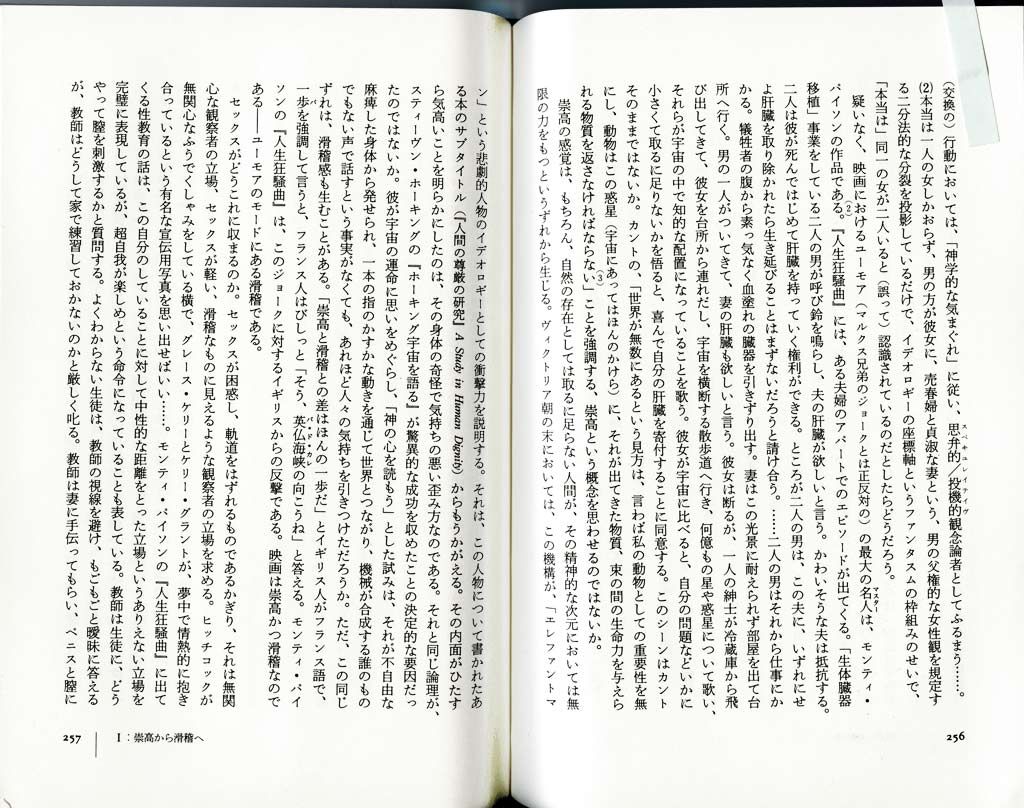 (交換の)行動においては、「神学的な気まぐれ」に従い、思弁的/投機的観念論者としてふるまう……。
スペキュレイティヴ
(2)本当は一人の女しかおらず、男の方が彼女に、売春婦と貞淑な妻という、男の父権的な女性観を規定す
る二分法的な分裂を投影しているだけで、イデオロギーの座標軸というファンタスムの枠組みのせいで、
「本当は」同一の女が二人いると(誤って)認識されているのだとしたらどうだろう。
疑いなく、映画におけるユーモア(マルクス兄弟のジョークとは正反対の)の最大の名人は、モンティ・
マスター
パイソンの作品である。『人生狂騒曲』には、ある夫婦のアパートでのエピソードが出てくる。「生体臓器
(2)
移植」事業をしている二人の男が呼び鈴を鳴らし、夫の肝臓が欲しいと言う。かわいそうな夫は抵抗する。
二人は彼が死んではじめて肝臓を持っていく権利ができる。ところが二人の男は、この夫に、いずれにせ
よ肝臓を取り除かれたら生き延びることはまずないだろうと請け合う。……二人の男はそれから仕事にか
かる。犠牲者の腹から素っ気なく血塗れの臓器を引きずり出す。妻はこの光景に耐えられず部屋を出て台
所へ行く。男の一人がついてきて、妻の肝臓も欲しいと言う。彼女は断るが、一人の紳士が冷蔵庫から飛
び出してきて、彼女を台所から連れだし、宇宙を横断する散歩道へ行き、何億もの星や惑星について歌い、
それらが宇宙の中で知的な配置になっていることを歌う。彼女が宇宙に比べると、自分の問題などいかに
小さくて取るに足りないかを悟ると、喜んで自分の肝臓を寄付することに同意する。このシーンはカント
そのままではないか。カントの、「世界が無数にあるという見方は、言わば私の動物としての重要性を無
にし、動物はこの惑星(宇宙にあってはほんのかけら)に、それが出てきた物質、束の間の生命力を与えら
れる物質を返さなければならない」ことを強調する、崇高という概念を思わせるのではないか。
(3)
崇高の感覚は、もちろん、自然の存在としては取るに足らない人間が、その精神的な次元においては無
限の力をもつというずれから生じる。ヴィクトリア朝の末においては、この機構が、「エレファントマ
256
ン」という悲劇的人物のイデオロギーとしての衝撃力を説明する。それは、この人物について書かれたあ
る本のサブタイトル(『人間の尊厳の研究』A Study in Human Dignity)からもうかがえる。その内面がひたす
ら気高いことを明らかにしたのは、その身体の奇怪で気持ちの悪い歪み方なのである。それと同じ論理が、
スティーヴン・ホーキングの『ホーキング宇宙を語る』が驚異的な成功を収めたことの決定的な要因だっ
たのではないか。彼が宇宙の運命に思いをめぐらし、「神の心を読もう」とした試みは、それが不自由な
麻痺した身体から発せられ、一本の指のかすかな動きを通じて世界とつながり、機械が合成する誰のもの
でもない声で話すという事実がなくても、あれほど人々の気持ちを引きつけただろうか。ただ、この同じ
ずれは、滑稽感も生むことがある。「崇高と滑稽との差はほんの一歩だ」とイギリス人がフランス語で、
一歩を強調して言うと、フランス人はびしっと「そう、英仏海峡の向こうね」と答える。モンティ・パイ
パ
パ・ド・カレ
ソンの『人生狂騒曲』は、このジョークに対するイギリスからの反撃である。映画は崇高かつ滑稽なので
ある――ユーモアのモードにある滑稽である。
セックスがどうこれに収まるのか。セックスが困惑し、軌道をはずれるものであるかぎり、それは無関
心な観察者の立場、セックスが軽い、滑稽なものに見えるような観察者の立場を求める。ヒッチコックが
無関心なふうでくしゃみをしている横で、グレース・ケリーとケリー・グラントが、夢中で情熱的に抱き
合っているという有名な宣伝用写真を思い出せばいい……。モンティ・パイソンの『人生狂騒曲』に出て
くる性教育の話は、この自分のしていることに対して中性的な距離をとった立場というありえない立場を
完璧に表現しているが、超自我が楽しめという命令になっていることも表している。教師は生徒に、どう
やって膣を刺激するかと質問する。よくわからない生徒は、教師の視線を避け、もごもご曖昧に答える
が、教師はどうして家で練習しておかないのかと厳しく叱る。教師は妻に手伝ってもらい、ペニスと膣に
257 I:崇高から滑稽へ